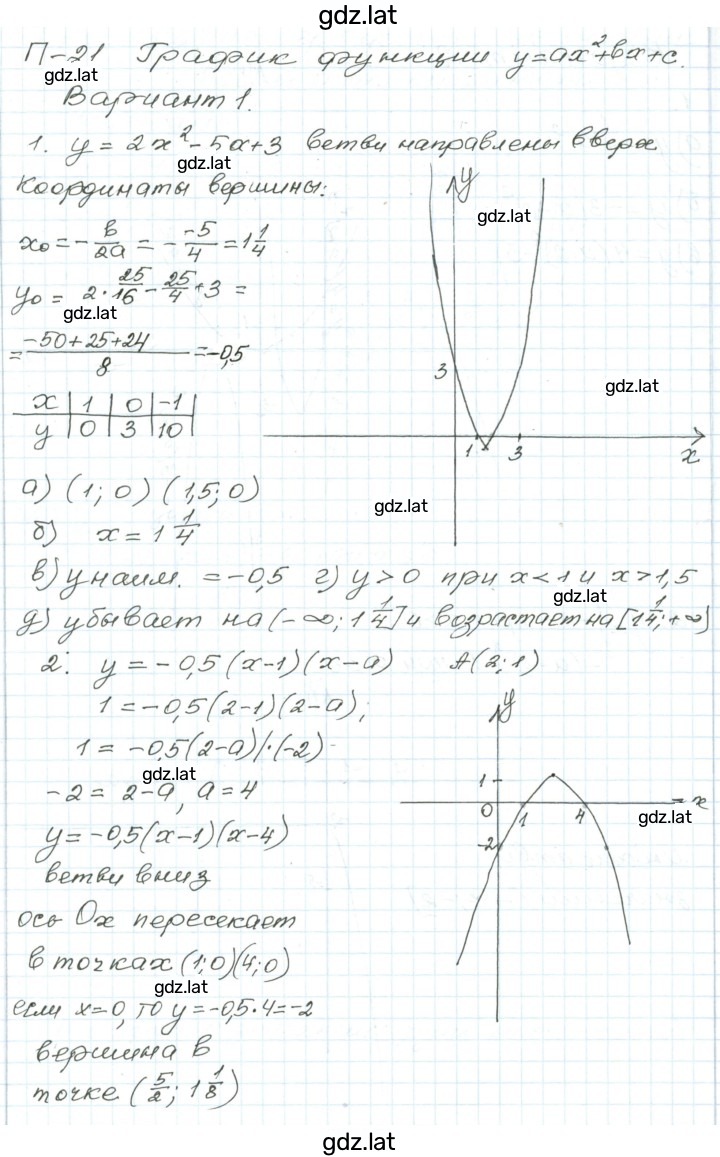 gdz.lat
П-21 График функции y=ax²+bx+c.
gdz.lat
Вариант 1.
1. y = 2x² - 5x+3 ветви направлены вверх
gdz.lat
Координаты вершины:
y
gdz.lat
x₀ = - b/2a = - -5/4 = 1 1/4
y₀ = 2·25/16 - 25/4 + 3 =
gdz.lat
= -50+25+24/8 = -0,5
3
gdz.lat
x | 1 | 0 | -1
y | 0 | 3 | 10
1 3 x
а) (1; 0) (1,5; 0)
gdz.lat
б) x = 1 1/4
в) y наим. = -0,5 г) y > 0 при x < 1 и x > 1,5
gdz.lat
д) убывает на (-∞; 1 1/4] и возрастает на [1 1/4; +∞)
2. y = -0,5(x-1)(x-a) A(2; 1)
1 = -0,5(2-1)(2-a);
y
1 = -0,5(2-a)|·(-2)
gdz.lat
-2 = 2-a, a = 4
1
x
0 1 4
gdz.lat
y = -0,5(x-1)(x-4)
-2
ветви вниз
ось Ox пересекает
в точках (1; 0)(4; 0)
gdz.lat
если x=0, то y = -0,5·4 = -2
вершина в
точке (5/2; 1 1/8)
gdz.lat